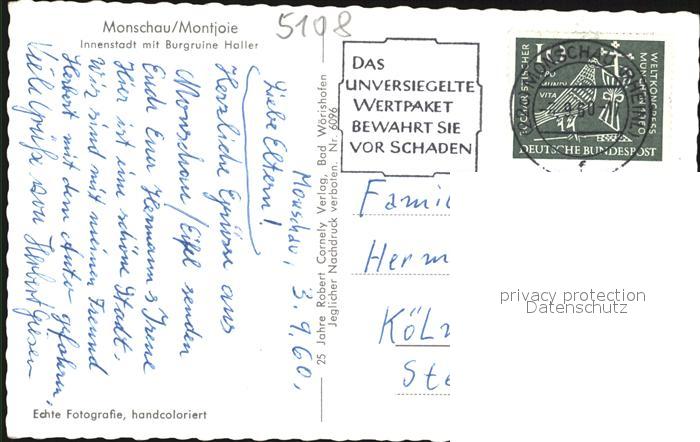 Monschau/Montjoie
Innenstadt mit Burgruine Haller
5108
DAS
UNVERSIEGELTE
WERTPAKET
BEWAHRT SIE
VOR SCHADEN
EUCHARISTISCHER
WELTKONGRESS
MÜNCHEN 1960
PRO MUNDI VITA
DEUTSCHE BUNDESPOST
MONSCHAU
Monschau, 3.9.60.
Liebe Eltern!
Herzliche Grüsse aus
Monschau/Eifel senden
Euch Euer Hermann & Irene
Hier ist eine schöne Stadt.
Wir sind mit meinen Freund
Herbert mit dem Auto gefahren.
Viele Grüße von Herbert
25 Jahre Robert Cornely Verlag, Bad Wörishofen
Jeglicher Nachdruck verboten. Nr. 6096
Famil
Herm
Köln
Ste
privacy protection
Datenschutz
Echte Fotografie, handcoloriert